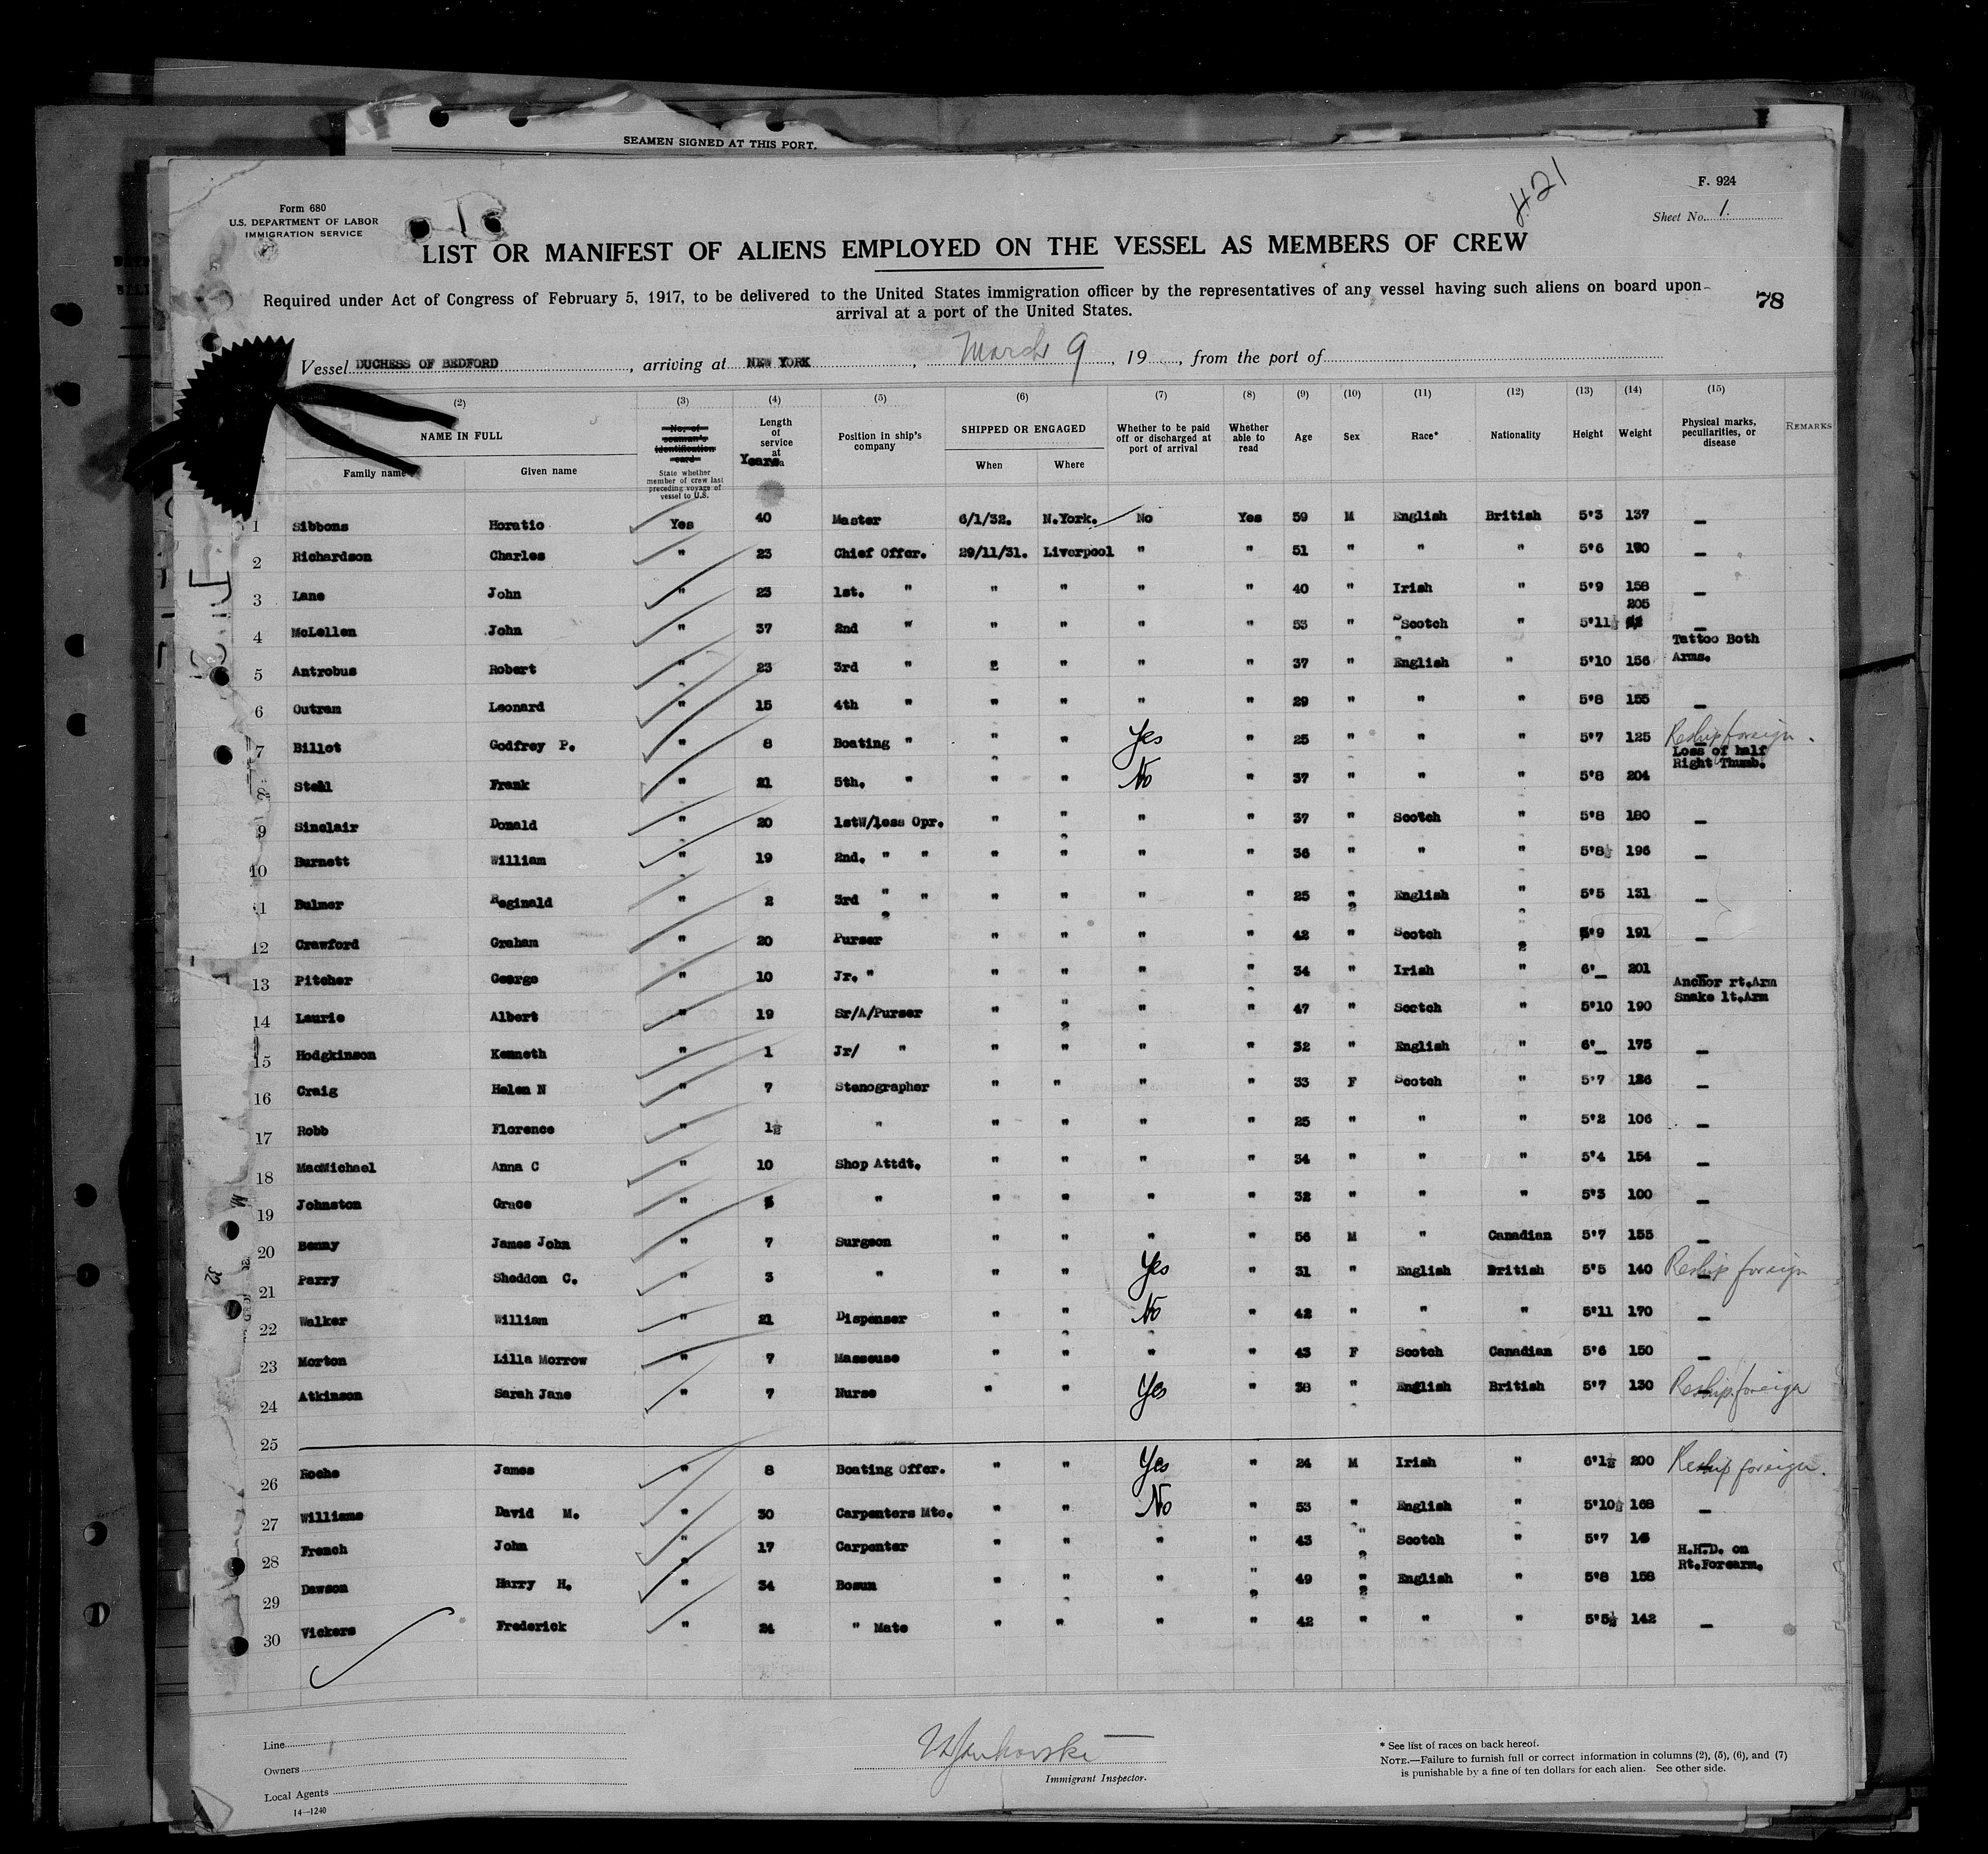 SEAMEN SIGNED AT THIS PORT.
421
F. 924
Form 680
U.S. DEPARTMENT OF LABOR
IMMIGRATION SERVICE
Sheet No. 1.
LIST OR MANIFEST OF ALIENS EMPLOYED ON THE VESSEL AS MEMBERS OF CREW
Required under Act of Congress of February 5, 1917, to be delivered to the United States immigration officer by the representatives of any vessel having such aliens on board upon
arrival at a port of the United States.
78
Vessel DUCHESS OF BEDFORD, arriving at NEW YORK, March 9, 19, from the port of
(2) (3) (4) (5) (6) (7) (8) (9) (10) (11) (12) (13) (14) (15)
NAME IN FULL
Family name Given name
No. of seaman's identification card
State whether member of crew last preceding voyage of vessel to U.S.
Length of service at Years
Position in ship's company
SHIPPED OR ENGAGED
When Where
Whether to be paid off or discharged at port of arrival
Whether able to read
Age Sex Race* Nationality Height Weight
Physical marks, peculiarities, or disease
REMARKS
1 Sibbons Horatio Yes 40 Master 6/1/32. N.York. No Yes 59 M English British 5'3 137 –
2 Richardson Charles " 23 Chief Offer. 29/11/31. Liverpool " " 51 " " " 5'6 –
3 Lane John " 23 1st. " " " " " 40 " Irish " 5'9 158 –
4 McLellen John " 37 2nd " " " " " 53 " Scotch " 5'11½ 205 –
5 Antrobus Robert " 23 3rd " " " " " 37 " English " 5'10 156 Tattoo Both Arms.
6 Outram Leonard " 15 4th " " " " " 29 " " " 5'8 155 –
7 Billot Godfrey P. " 8 Boating " " " Yes " 25 " " " 5'7 125 – Reship foreign.
8 Stehl Frank " 21 5th. " " " No " 37 " " " 5'8 204 Loss of half Right Thumb.
9 Sinclair Donald " 20 1stW/less Opr. " " " " 37 " Scotch " 5'8 180 –
10 Burnett William " 19 2nd. " " " " " " 36 " " " 5'8½ 196 –
11 Bulmer Reginald " 2 3rd " " " " " " 25 " English " 5'5 131 –
12 Crawford Graham " 20 Purser " " " " 42 " Scotch " 5'9 191 –
13 Pitcher George " 10 Jr. " " " " " 34 " Irish " 6'_ 201 –
14 Laurie Albert " 19 Sr/A/Purser " " " " 47 " Scotch " 5'10 190 Anchor rt.Arm Snake lt.Arm
15 Hodgkinson Kenneth " 1 Jr/ " " " " " 32 " English " 6'_ 175 –
16 Craig Helen N " 7 Stenographer " " " " 33 F Scotch " 5'7 126 –
17 Robb Florence " 1½ " " " " " 25 " " " 5'2 106 –
18 MacMichael Anna C " 10 Shop Attdt. " " " " 34 " " " 5'4 154 –
19 Johnston Grace " " " " " " 32 " " " 5'3 100 –
20 Benny James John " 7 Surgeon " " " " 56 M " Canadian 5'7 155 –
21 Parry Sheddon C. " 3 " " " Yes " 31 " English British 5'5 140 – Reship foreign
22 Walker William " 21 Dispenser " " No " 42 " " " 5'11 170 –
23 Morton Lilla Morrow " 7 Masseuse " " " " 43 F Scotch Canadian 5'6 150 –
24 Atkinson Sarah Jane " 7 Nurse " " Yes " 38 " English British 5'7 130 – Reship foreign
25
26 Roche James " 8 Boating Offer. " " Yes " 24 M Irish " 6'1½ 200 – Reship foreign.
27 Williams David M. " 30 Carpenters Mte. " " No " 53 " English " 5'10½ 168 –
28 French John " 17 Carpenter " " " " 43 " Scotch " 5'7 –
29 Dawson Harry H. " 34 Bosun " " " " 49 " English " 5'8 158 H.H.D. on Rt.Forearm.
30 Vickers Frederick " 24 " Mate " " " " 42 " " " 5'5½ 142 –
Line
Owners
Local Agents
14—1240
Immigrant Inspector.
* See list of races on back hereof.
NOTE.—Failure to furnish full or correct information in columns (2), (5), (6), and (7)
is punishable by a fine of ten dollars for each alien. See other side.